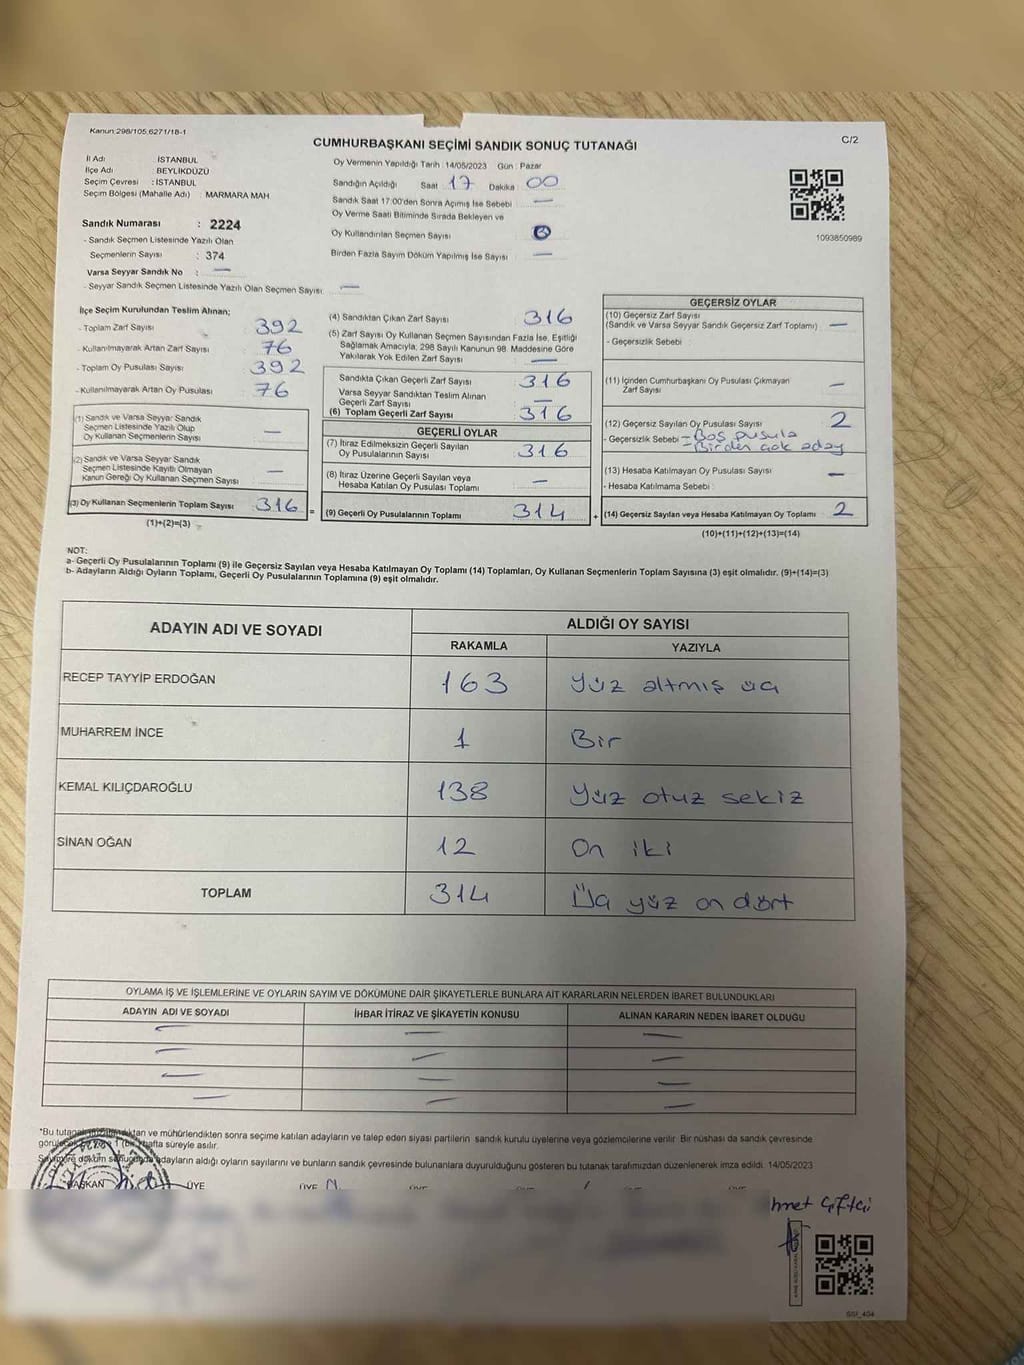 Kanun:298/105,6271/18-1
C/2
CUMHURBAŞKANI SEÇİMİ SANDIK SONUÇ TUTANAĞI
İl Adı İSTANBUL
İlçe Adı BEYLİKDÜZÜ
Seçim Çevresi : İSTANBUL
Seçim Bölgesi (Mahalle Adı) MARMARA MAH
Sandık Numarası : 2224
- Sandık Seçmen Listesinde Yazılı Olan
Seçmenlerin Sayısı : 374
Varsa Seyyar Sandık No : —
- Seyyar Sandık Seçmen Listesinde Yazılı Olan Seçmen Sayısı: —
Oy Vermenin Yapıldığı Tarih : 14/05/2023 Gün : Pazar
Sandığın Açıldığı Saat 17 Dakika 00
Sandık Saat 17:00'den Sonra Açımış İse Sebebi —
Oy Verme Saati Bitiminde Sırada Bekleyen ve
Oy Kullandırılan Seçmen Sayısı
Birden Fazla Sayım Döküm Yapılmış İse Sayısı —
1093850989
İlçe Seçim Kurulundan Teslim Alınan;
- Toplam Zarf Sayısı 392
- Kullanılmayarak Artan Zarf Sayısı 76
- Toplam Oy Pusulası Sayısı 392
- Kullanılmayarak Artan Oy Pusulası 76
(1) Sandık ve Varsa Seyyar Sandık
Seçmen Listesinde Yazılı Olup
Oy Kullanan Seçmenlerin Sayısı —
(2) Sandık ve Varsa Seyyar Sandık
Seçmen Listesinde Kayıtlı Olmayan
Kanun Gereği Oy Kullanan Seçmen Sayısı —
(3) Oy Kullanan Seçmenlerin Toplam Sayısı 316 =
(1)+(2)=(3)
(4) Sandıktan Çıkan Zarf Sayısı 316
(5) Zarf Sayısı Oy Kullanan Seçmen Sayısından Fazla İse, Eşitliği
Sağlamak Amacıyla, 298 Sayılı Kanunun 98. Maddesine Göre
Yakılarak Yok Edilen Zarf Sayısı —
Sandıkta Çıkan Geçerli Zarf Sayısı 316
Varsa Seyyar Sandıktan Teslim Alınan
Geçerli Zarf Sayısı —
(6) Toplam Geçerli Zarf Sayısı 316
GEÇERLİ OYLAR
(7) İtiraz Edilmeksizin Geçerli Sayılan
Oy Pusulalarının Sayısı 316
(8) İtiraz Üzerine Geçerli Sayılan veya
Hesaba Katılan Oy Pusulası Toplamı —
(9) Geçerli Oy Pusulalarının Toplamı 314 +
GEÇERSİZ OYLAR
(10) Geçersiz Zarf Sayısı
(Sandık ve Varsa Seyyar Sandık Geçersiz Zarf Toplamı) —
- Geçersizlik Sebebi :
(11) İçinden Cumhurbaşkanı Oy Pusulası Çıkmayan
Zarf Sayısı —
(12) Geçersiz Sayılan Oy Pusulası Sayısı 2
- Geçersizlik Sebebi - Boş pusula
- Birden çok aday
(13) Hesaba Katılmayan Oy Pusulası Sayısı —
- Hesaba Katılmama Sebebi :
(14) Geçersiz Sayılan veya Hesaba Katılmayan Oy Toplamı 2
(10)+(11)+(12)+(13)=(14)
NOT:
a- Geçerli Oy Pusulalarının Toplamı (9) ile Geçersiz Sayılan veya Hesaba Katılmayan Oy Toplamı (14) Toplamları, Oy Kullanan Seçmenlerin Toplam Sayısına (3) eşit olmalıdır. (9)+(14)=(3)
b- Adayların Aldığı Oyların Toplamı, Geçerli Oy Pusulalarının Toplamına (9) eşit olmalıdır.
ADAYIN ADI VE SOYADI ALDIĞI OY SAYISI
RAKAMLA YAZIYLA
RECEP TAYYİP ERDOĞAN 163 Yüz altmış üç
MUHARREM İNCE 1 Bir
KEMAL KILIÇDAROĞLU 138 Yüz otuz sekiz
SİNAN OĞAN 12 On iki
TOPLAM 314 Üç yüz on dört
OYLAMA İŞ VE İŞLEMLERİNE VE OYLARIN SAYIM VE DÖKÜMÜNE DAİR ŞİKAYETLERLE BUNLARA AİT KARARLARIN NELERDEN İBARET BULUNDUKLARI
ADAYIN ADI VE SOYADI İHBAR İTİRAZ VE ŞİKAYETİN KONUSU ALINAN KARARIN NEDEN İBARET OLDUĞU
— — —
— — —
— — —
— — —
*Bu tutanak ve mühürlendikten sonra seçime katılan adayların ve talep eden siyasi partilerin sandık kurulu üyelerine veya gözlemcilerine verilir. Bir nüshası da sandık çevresinde
1 (bir) hafta süreyle asılır.
döküm adayların aldığı oyların sayılarını ve bunların sandık çevresinde bulunanlara duyurulduğunu gösteren bu tutanak tarafımızdan düzenlenerek imza edildi. 14/05/2023
BAŞKAN ÜYE ÜYE
Çiftçi
SSI_404